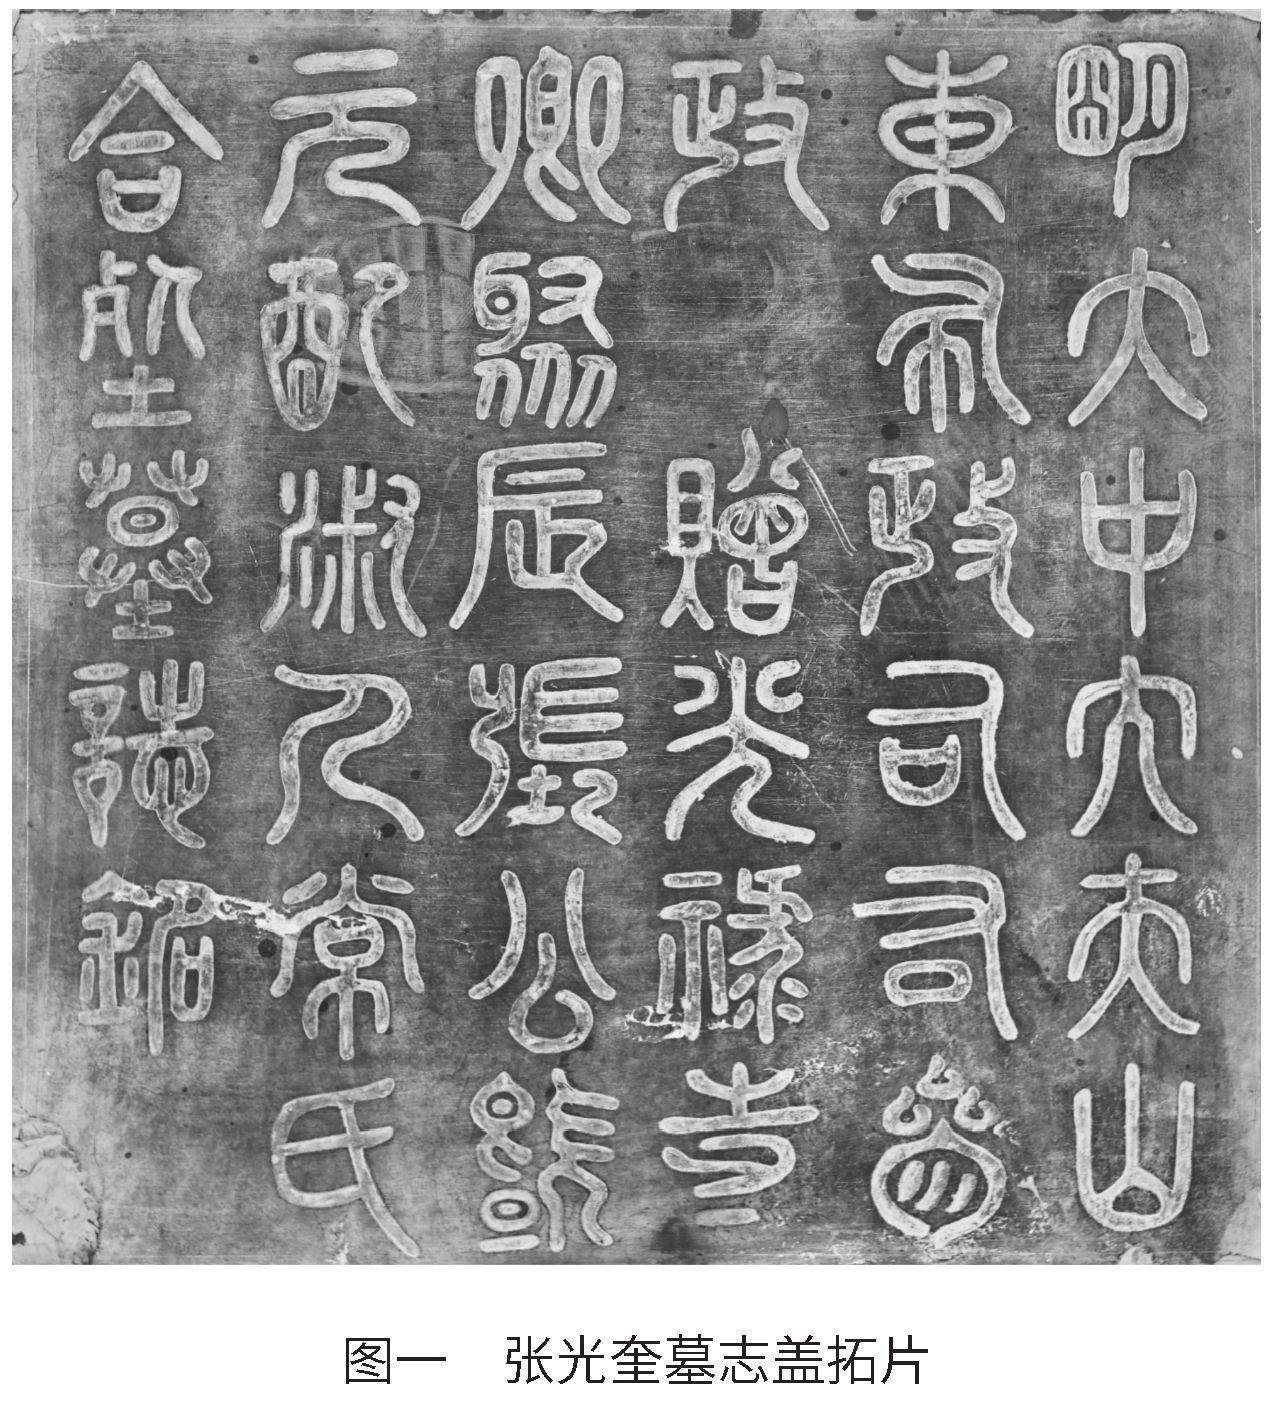 明大中大夫山
東布政司右參
政 贈光祿寺
卿聚辰張公暨
元配淑人常氏
合葬墓誌銘
图一 张光奎墓志盖拓片